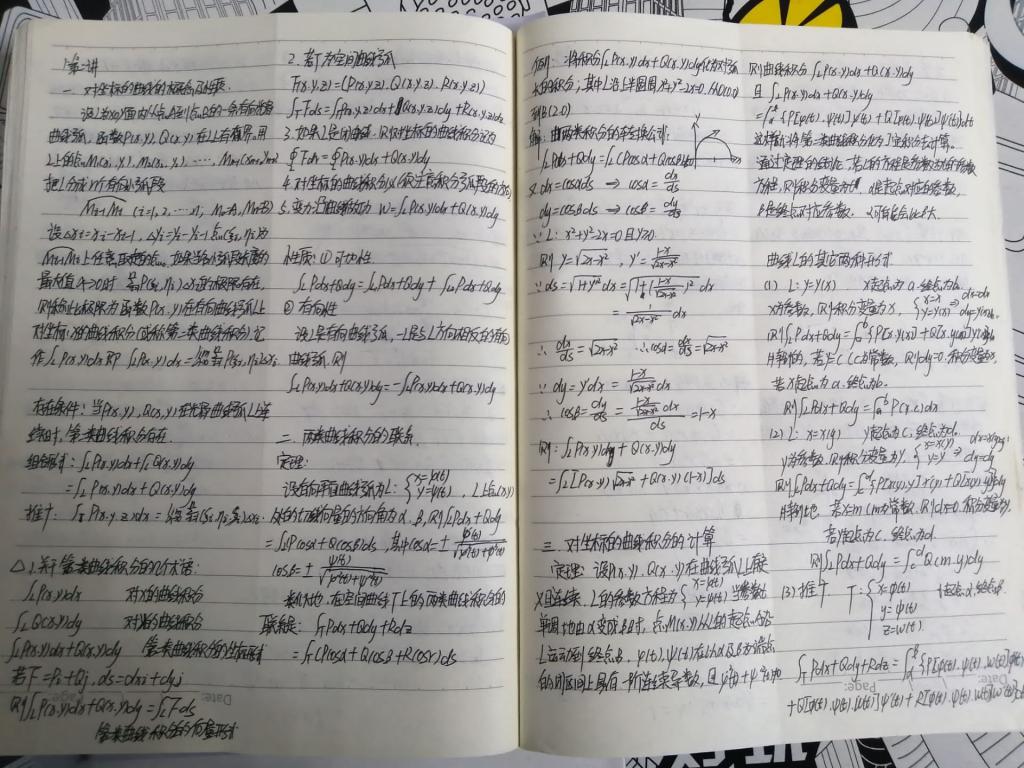 第一讲
一. 对坐标的曲线积分的概念及性质
设L为xoy面内从点A到点B的一条有向光滑
曲线弧, 函数P(x,y), Q(x,y)在L上有界, 用
L上的点M₁(x₁,y₁), M₂(x₂,y₂), ……, Mₙ₋₁(xₙ₋₁,yₙ₋₁)
把L分成n个有向小弧段
Mᵢ₋₁Mᵢ (i=1,2,…,n; M₀=A, Mₙ=B)
设Δxᵢ=xᵢ-xᵢ₋₁, Δyᵢ=yᵢ-yᵢ₋₁ 点(ξᵢ,ηᵢ)为
Mᵢ₋₁Mᵢ上任意取定的点. 如果当各小弧段长度的
最大值λ→0时
则称此极限为函数P(x,y)在有向曲线弧L上
对坐标x的曲线积分(或称第二类曲线积分)记
作∫_L P(x,y)dx 即 ∫_L P(x,y)dx =
存在条件: 当P(x,y), Q(x,y)在光滑曲线弧L上连
续时, 第二类曲线积分存在.
组合形式: ∫_L P(x,y)dx+∫_L Q(x,y)dy
=∫_L P(x,y)dx+Q(x,y)dy
推广: ∫_Γ P(x,y,z)dx =
△1. 关于第二类曲线积分的几个术语:
∫_L P(x,y)dx 对x的曲线积分
∫_L Q(x,y)dy 对y的曲线积分
∫_L P(x,y)dx+Q(x,y)dy 第二类曲线积分的坐标形式
若F=Pi+Qj, ds=dxi+dyj
则∫_L P(x,y)dx+Q(x,y)dy=∫_L F·ds
第二类曲线积分的向量形式
2. 若Γ为空间曲线弧
F(x,y,z)=(P(x,y,z), Q(x,y,z), R(x,y,z))
∫_Γ F·ds=∫_Γ P(x,y,z)dx+Q(x,y,z)dy+R(x,y,z)dz
3. 如果L是闭曲线, 则对坐标的曲线积分记为
∮_L F·ds=∮_L P(x,y)dx+Q(x,y)dy
4. 对坐标的曲线积分必须注意积分弧段的方向
5. 变力沿曲线的功 W=∫_L P(x,y)dx+Q(x,y)dy
性质: ① 可加性
∫_L Pdx+Qdy=∫_L₁ Pdx+Qdy+∫_L₂ Pdx+Qdy
② 有向性
设L是有向曲线弧, -L是与L方向相反的有向
曲线弧, 则
∫_L P(x,y)dx+Q(x,y)dy=-∫_L P(x,y)dx+Q(x,y)dy
二. 两类曲线积分的联系
定理:
设有向平面曲线弧为L: {x=φ(t) y=ψ(t), L上点(x,y)
处的切线向量的方向角为α, β, 则∫_L Pdx+Qdy
=∫_L(Pcosα+Qcosβ)ds, 其中cosα=± φ'(t)/√(φ'²(t)+ψ'²(t))
cosβ=± ψ'(t)/√(φ'²(t)+ψ'²(t))
类似地, 在空间曲线Γ上的两类曲线积分的
联系是: ∫_Γ Pdx+Qdy+Rdz
=∫_Γ(Pcosα+Qcosβ+Rcosγ)ds
例1: 将积分∫_L P(x,y)dx+Q(x,y)dy化为对弧
长的积分, 其中L沿上半圆周x²+y²-2x=0, 从O(0,0)
到B(2,0)
解: 由两类积分的转换公式:
∫_L Pdx+Qdy=∫_L(Pcosα+Qcosβ)ds
又 dx=cosαds ⇒ cosα=dx/ds
dy=cosβds ⇒ cosβ=dy/ds
∵L: x²+y²-2x=0 且y≥0
则 y=√(2x-x²), y'=(1-x)/√(2x-x²)
∴ds=√(1+y'²)dx=√(1+((1-x)/√(2x-x²))²)dx
=1/√(2x-x²) dx
∴dx/ds=√(2x-x²) ∴cosα=dx/ds=√(2x-x²)
∵dy=y'dx=(1-x)/√(2x-x²) dx
∴cosβ=dy/ds=((1-x)/√(2x-x²) dx)/ds=1-x
则: ∫_L P(x,y)dx+Q(x,y)dy
=∫_L[P(x,y)√(2x-x²)+Q(x,y)(1-x)]ds
三. 对坐标的曲线积分的计算
定理: 设P(x,y), Q(x,y)在曲线弧L上有定
义且连续, L的参数方程为{x=φ(t) y=ψ(t) 当参数t
单调地由α变成β时, 点M(x,y)从L的起点A沿
L运动到终点B, φ(t), ψ(t)在以α及β为端点
的闭区间上具有一阶连续导数, 且φ'²(t)+ψ'²(t)≠0
则曲线积分∫_L P(x,y)dx+Q(x,y)dy
且∫_L P(x,y)dx+Q(x,y)dy
=∫_α^β{P[φ(t),ψ(t)]φ'(t)+Q[φ(t),ψ(t)]ψ'(t)}dt
这样就将第二类曲线积分化为了定积分去计算.
通过定理的结论, 若L的方程是参数t的参数
方程, 则积分变量为t, α是起点对应的参数,
β是终点对应参数, α可能会比β大.
曲线L的其它两种形式
(1) L: y=y(x) x起点为a, 终点为b.
x为参数, 则积分变量为x, {x=x y=y(x) ⇒ dx=dx dy=y'(x)dx
则∫_L Pdx+Qdy=∫_a^b{P[x,y(x)]+Q[x,y(x)]y'(x)}dx
特别的, 若y=C(C为常数), 则dy=0, 积分变量为x,
若x起点为a, 终点b.
则∫_L Pdx+Qdy=∫_a^b P(x,c)dx
(2) L: x=x(y) y起点为c, 终点为d.
y为参数, 则积分变量为y, {x=x(y) y=y ⇒ dx=x'(y)dy dy=dy
则∫_L Pdx+Qdy=∫_c^d{P[x(y),y]x'(y)+Q[x(y),y]}dy
特别地, 若x=m(m为常数), 则dx=0, 积分变量为y
若y起点为c, 终点d
则∫_L Pdx+Qdy=∫_c^d Q(m,y)dy
(3) 推广 Γ: {x=φ(t) y=ψ(t) z=w(t) t起点α, 终点β.
∫_Γ Pdx+Qdy+Rdz=∫_α^β{P[φ(t),ψ(t),w(t)]φ'(t)
+Q[φ(t),ψ(t),w(t)]ψ'(t)+R[φ(t),ψ(t),w(t)]w'(t)}dt